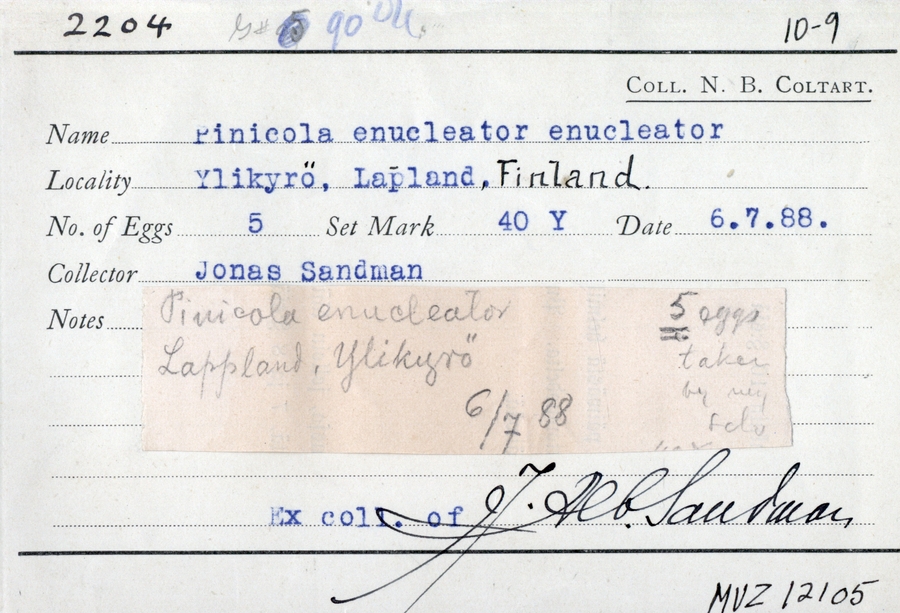 2204 10-9
COLL. N. B. COLTART.
Name Pinicola enucleator enucleator
Locality Ylikyrö, Lapland, Finland.
No. of Eggs 5 Set Mark 40 Y Date 6.7.88.
Collector Jonas Sandman
Notes
Pinicola enucleator 5 eggs
Lappland, Ylikyrö taken
by my
6/7 88 selv
Ex coll. of J. Alb. Sandman
MVZ 12105